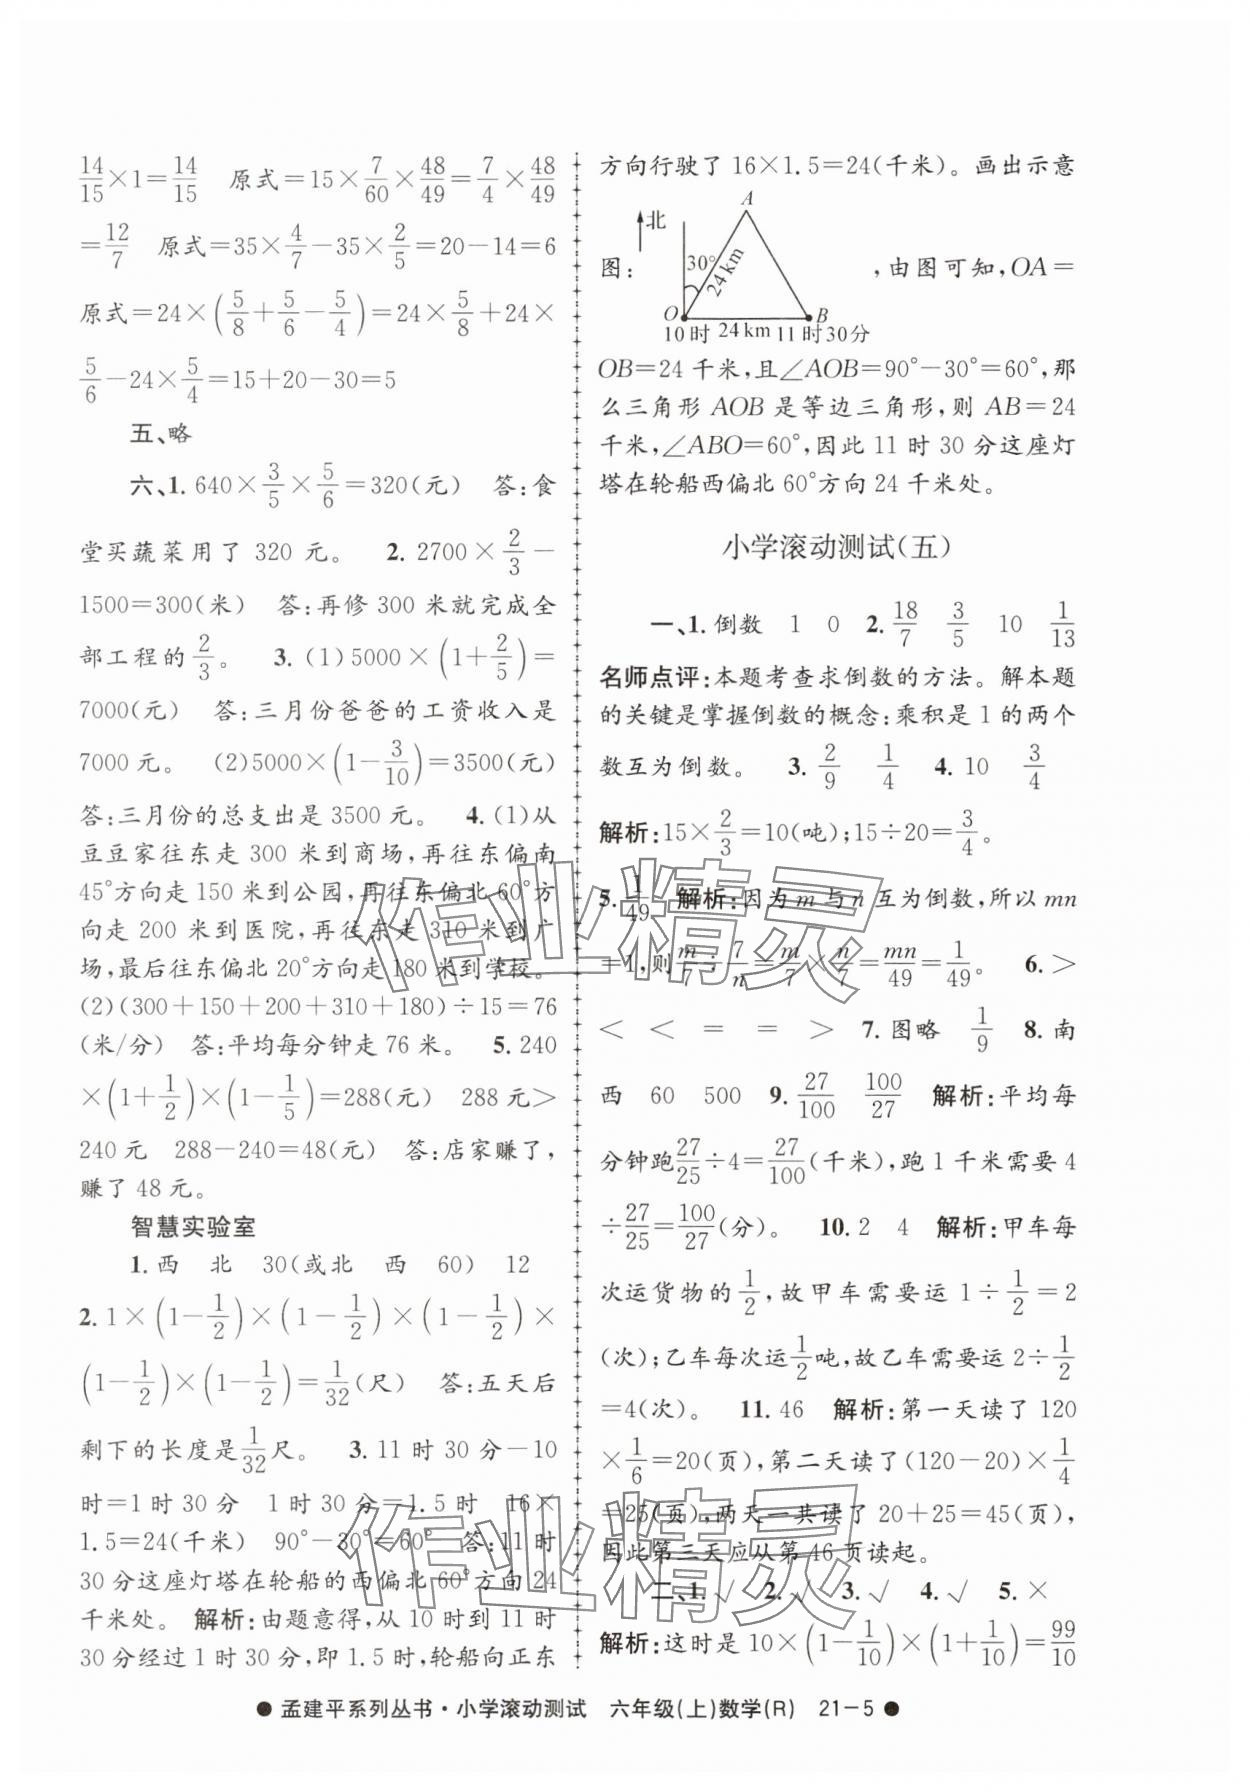 14/15×1=14/15 原式=15×7/60×48/49=7/4×48/49
=12/7 原式=35×4/7-35×2/5=20-14=6
原式=24×(5/8+5/6-5/4)=24×5/8+24×
5/6-24×5/4=15+20-30=5
五、略
六、1. 640×3/5×5/6=320(元) 答:食
堂买蔬菜用了 320 元。 2. 2700×2/3-
1500=300(米) 答:再修 300 米就完成全
部工程的2/3。 3. (1)5000×(1+2/5)=
7000(元) 答:三月份爸爸的工资收入是
7000 元。 (2)5000×(1-3/10)=3500(元)
答:三月份的总支出是 3500 元。 4. (1)从
豆豆家往东走 300 米到商场,再往东偏南
45°方向走 150 米到公园,再往东偏北 60°方
向走 200 米到医院,再往东走 310 米到广
场,最后往东偏北 20°方向走 180 米到学校。
(2)(300+150+200+310+180)÷15=76
(米/分) 答:平均每分钟走 76 米。 5. 240
×(1+1/2)×(1-1/5)=288(元) 288元>
240元 288-240=48(元) 答:店家赚了,
赚了 48 元。
智慧实验室
1. 西 北 30(或北 西 60) 12
2. 1×(1-1/2)×(1-1/2)×(1-1/2)×
(1-1/2)×(1-1/2)=1/32(尺) 答:五天后
剩下的长度是1/32尺。 3. 11 时 30 分-10
时=1 时 30 分 1 时 30 分=1.5 时 16×
1.5=24(千米) 90°-30°=60° 答:11 时
30 分这座灯塔在轮船的西偏北 60°方向 24
千米处。 解析:由题意得,从 10 时到 11 时
30 分经过 1 时 30 分,即 1.5 时,轮船向正东
方向行驶了 16×1.5=24(千米)。画出示意
图: 北 A 30° 24 km O B 10时 24 km 11 时30分 ,由图可知,OA=
OB=24 千米,且∠AOB=90°-30°=60°,那
么三角形 AOB 是等边三角形,则 AB=24
千米,∠ABO=60°,因此 11 时 30 分这座灯
塔在轮船西偏北 60°方向 24 千米处。
小学滚动测试(五)
一、1. 倒数 1 0 2. 18/7 3/5 10 1/13
名师点评:本题考查求倒数的方法。解本题
的关键是掌握倒数的概念:乘积是 1 的两个
数互为倒数。 3. 2/9 1/4 4. 10 3/4
解析:15×2/3=10(吨);15÷20=3/4。
5. 1/49 解析:因为 m 与 n 互为倒数,所以 mn
=1,则m/7÷7/n=m/7×n/7=mn/49=1/49。 6. >
< < = = > 7. 图略 1/9 8. 南
西 60 500 9. 27/100 100/27 解析:平均每
分钟跑27/25÷4=27/100(千米),跑 1 千米需要 4
÷27/25=100/27(分)。 10. 2 4 解析:甲车每
次运货物的1/2,故甲车需要运 1÷1/2=2
(次);乙车每次运1/2吨,故乙车需要运 2÷1/2
=4(次)。 11. 46 解析:第一天读了 120
×1/6=20(页),第二天读了(120-20)×1/4
=25(页),两天一共读了 20+25=45(页),
因此第三天应从第 46 页读起。
二、1. √ 2. √ 3. √ 4. √ 5. ×
解析:这时是 10×(1-1/10)×(1+1/10)=99/10
作业精灵
作业精灵
● 孟建平系列丛书·小学滚动测试 六年级(上)数学(R) 21-5 ●